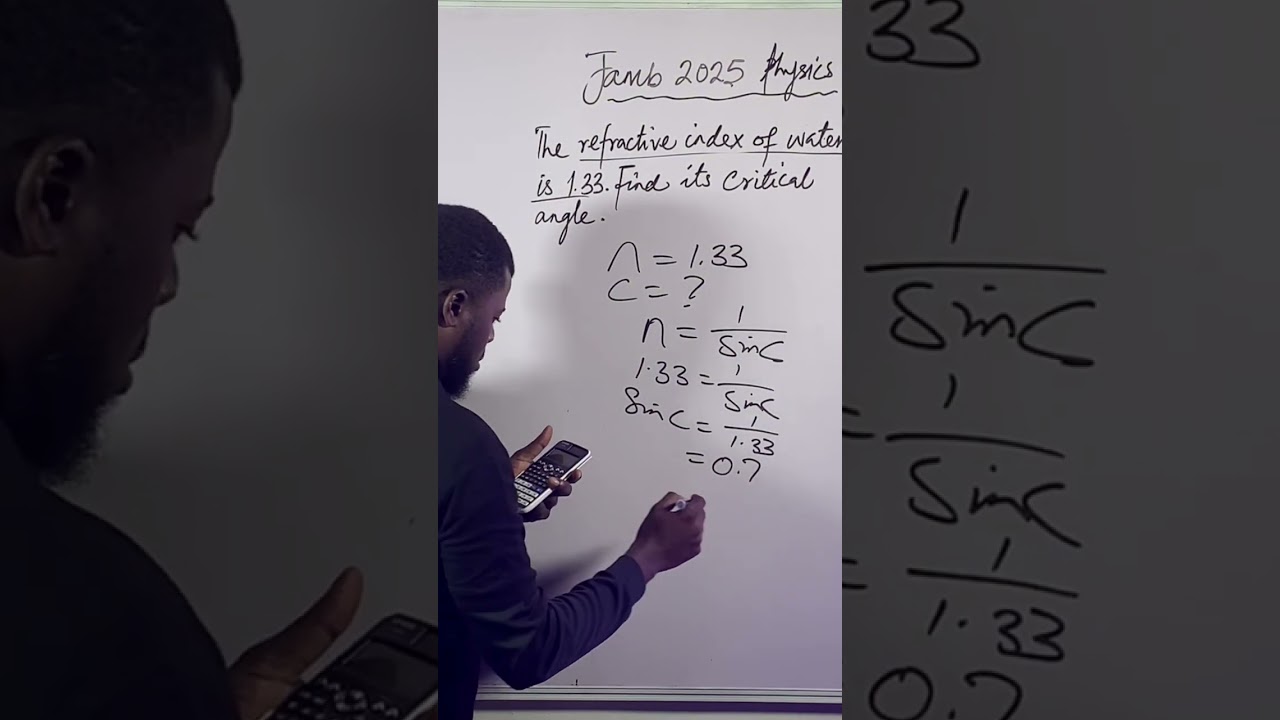 Jamb 2025 Physics
The refractive index of water
is 1.33. Find its critical
angle.
n = 1.33
c = ?
n = 1/Sin C
1.33 = 1/Sin C
Sin C = 1/1.33
= 0.7
33
1/Sin C
= 1/Sin C
= 1/1.33
0.7